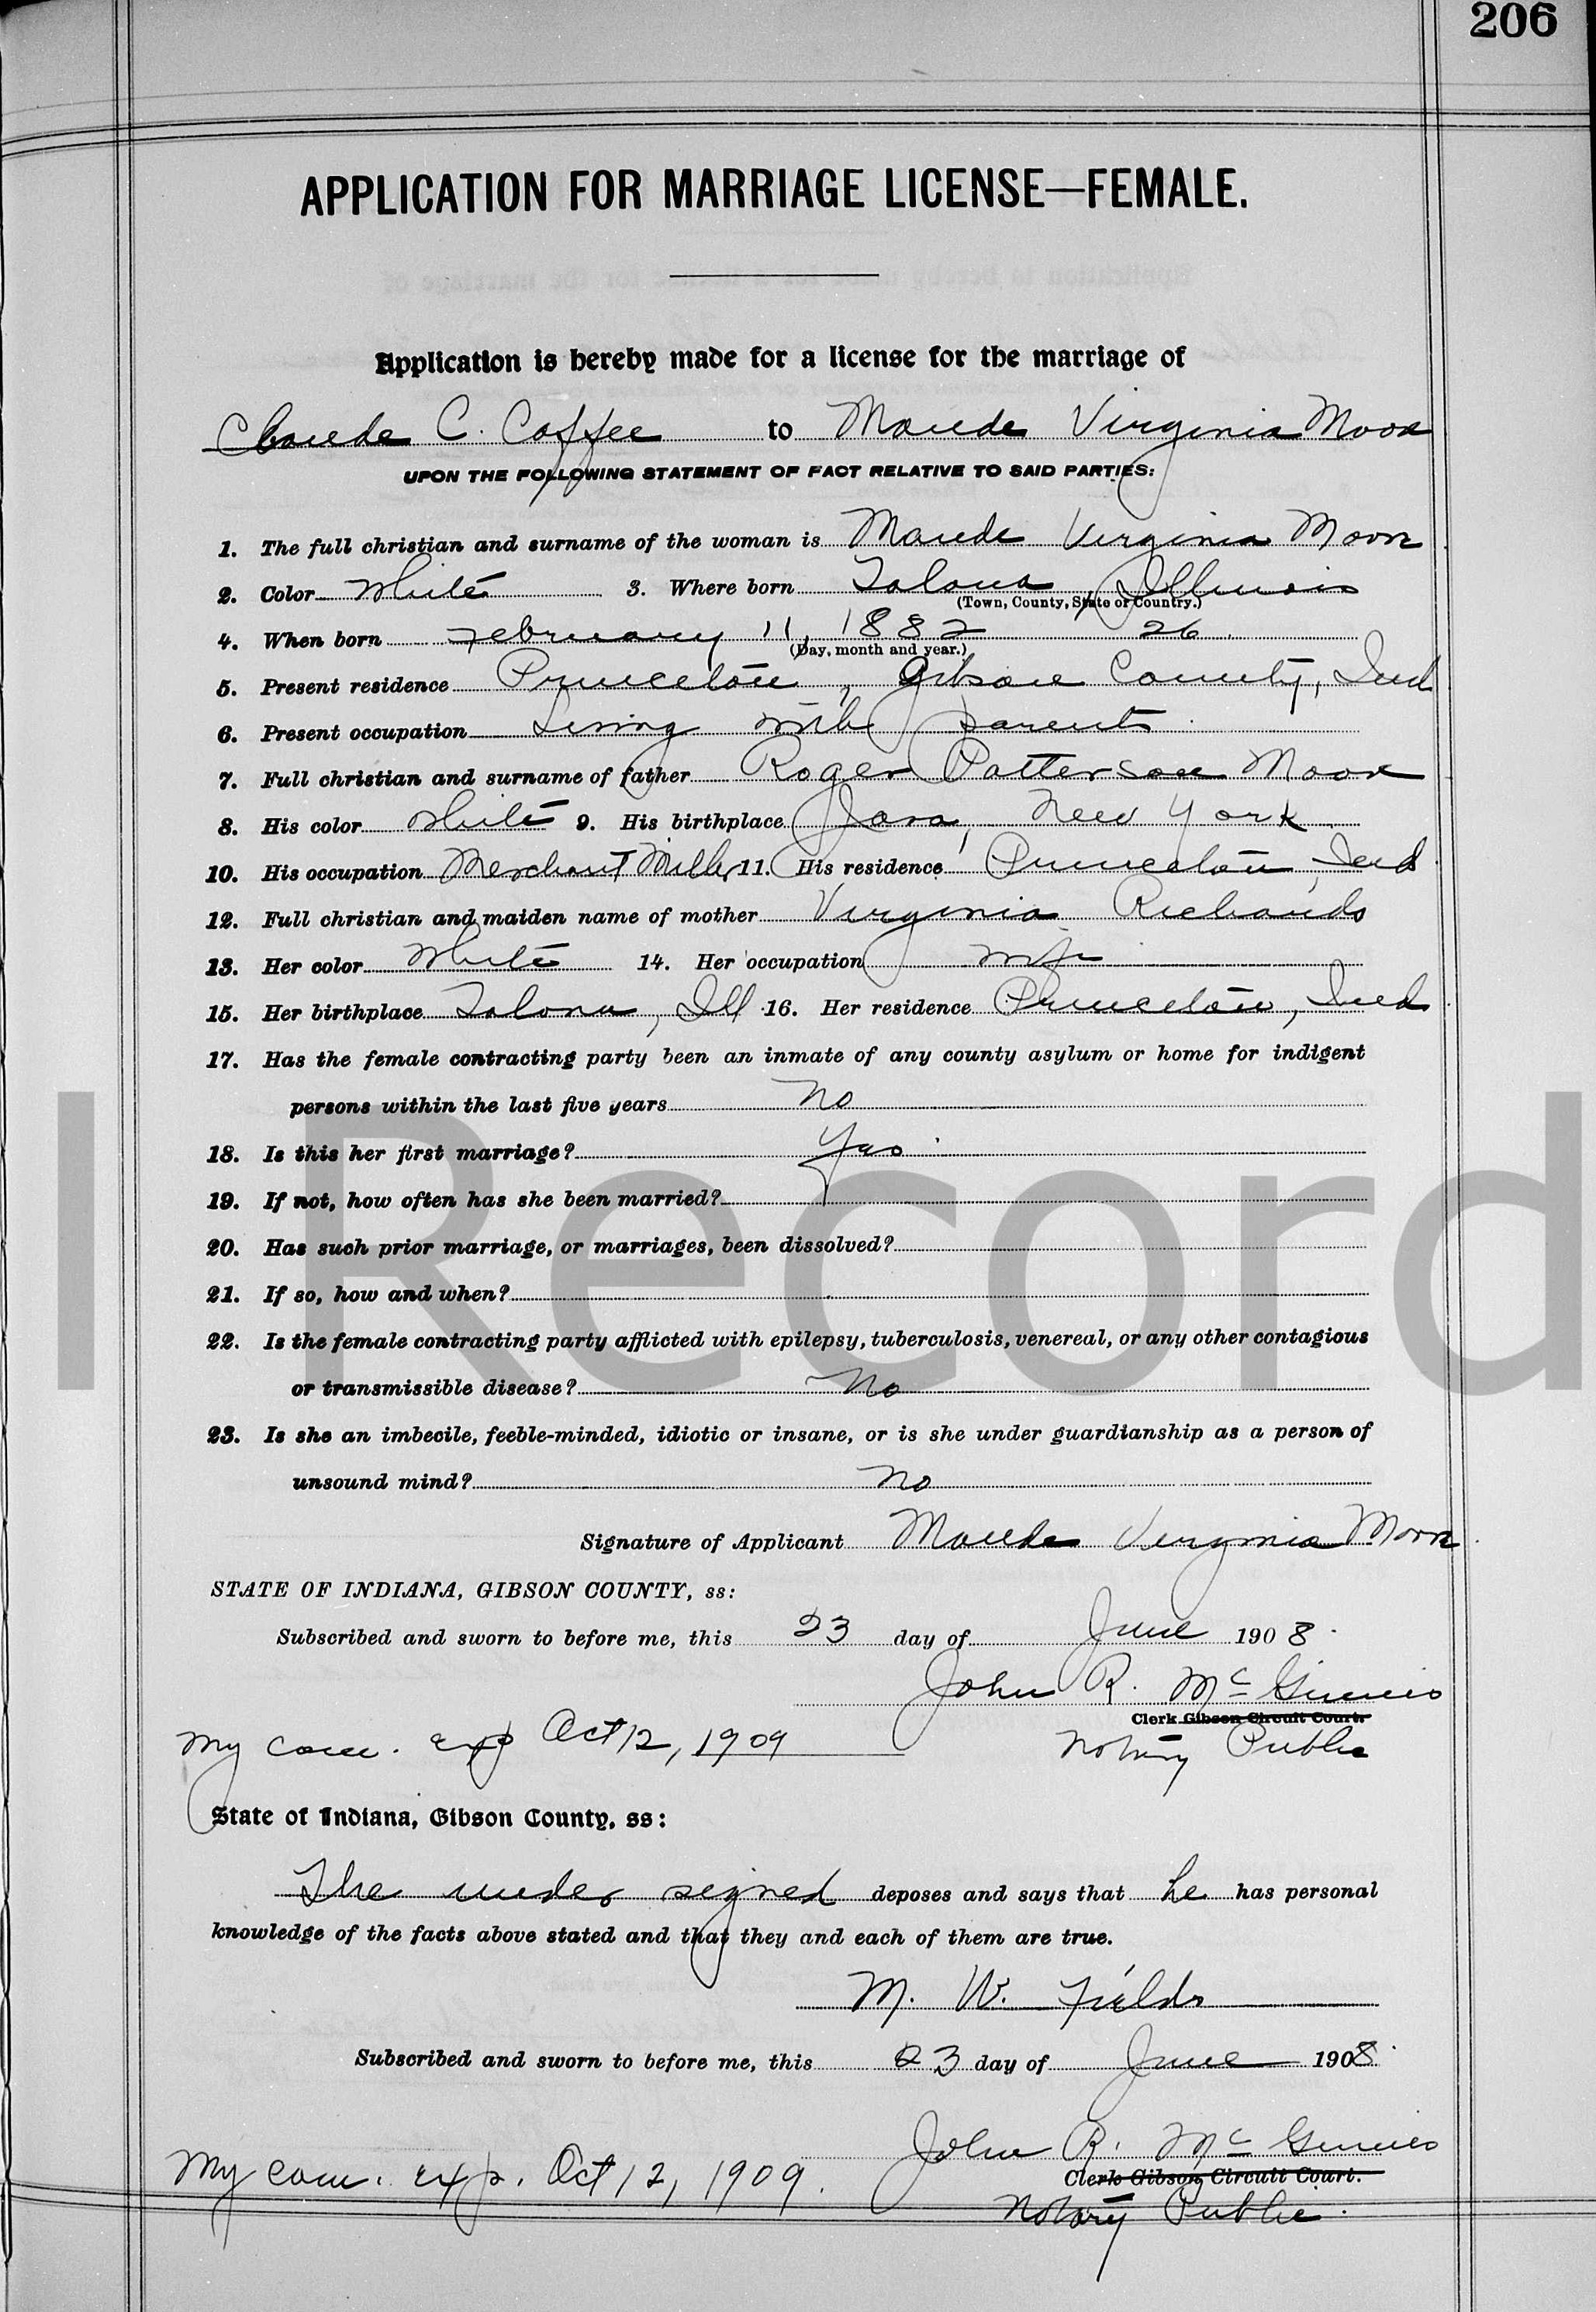 206
APPLICATION FOR MARRIAGE LICENSE—FEMALE.
Application is hereby made for a license for the marriage of
Claude C. Coffee to Maude Virginia Moore
UPON THE FOLLOWING STATEMENT OF FACT RELATIVE TO SAID PARTIES:
1. The full christian and surname of the woman is Maude Virginia Moore
2. Color White 3. Where born Tolona, Illinois
(Town, County, State or Country.)
4. When born February 11, 1882 26
(Day, month and year.)
5. Present residence Princeton, Gibson County, Ind
6. Present occupation Living with parents
7. Full christian and surname of father Roger Patterson Moore
8. His color White 9. His birthplace Java, New York
10. His occupation Merchant Miller 11. His residence Princeton, Ind
12. Full christian and maiden name of mother Virginia Richards
13. Her color White 14. Her occupation wife
15. Her birthplace Tolona, Ill 16. Her residence Princeton, Ind
17. Has the female contracting party been an inmate of any county asylum or home for indigent
persons within the last five years No
18. Is this her first marriage? Yes
19. If not, how often has she been married?
20. Has such prior marriage, or marriages, been dissolved?
21. If so, how and when?
22. Is the female contracting party afflicted with epilepsy, tuberculosis, venereal, or any other contagious
or transmissible disease? No
23. Is she an imbecile, feeble-minded, idiotic or insane, or is she under guardianship as a person of
unsound mind? No
Signature of Applicant Maude Virginia Moore
STATE OF INDIANA, GIBSON COUNTY, ss:
Subscribed and sworn to before me, this 23 day of June 1908.
John R. McGinnis
Clerk Gibson Circuit Court.
My com. exp Oct 12, 1909 Notary Public
State of Indiana, Gibson County, ss:
The under signed deposes and says that he has personal
knowledge of the facts above stated and that they and each of them are true.
M. W. Fields
Subscribed and sworn to before me, this 23 day of June 1908.
John R. McGinnis
Clerk Gibson Circuit Court.
My com. exp. Oct 12, 1909. Notary Public.
l Record